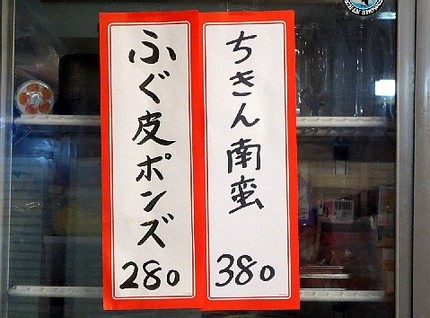 ちきん南蛮
380
ふぐ皮ポンズ
280